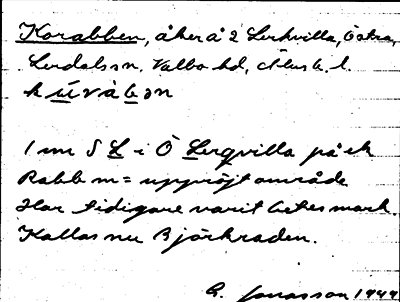 Korabben, åker å 2 Lerkvilla, Östra,
Lerdals sn. Valbo hd, Älvsb. l.
kúvàbən
1 km S L i Ö Lerqvilla på ek
Rabb m = uppröjt område
Har tidigare varit betesmark.
Kallas nu Björkraden.
G. Jonasson 1944